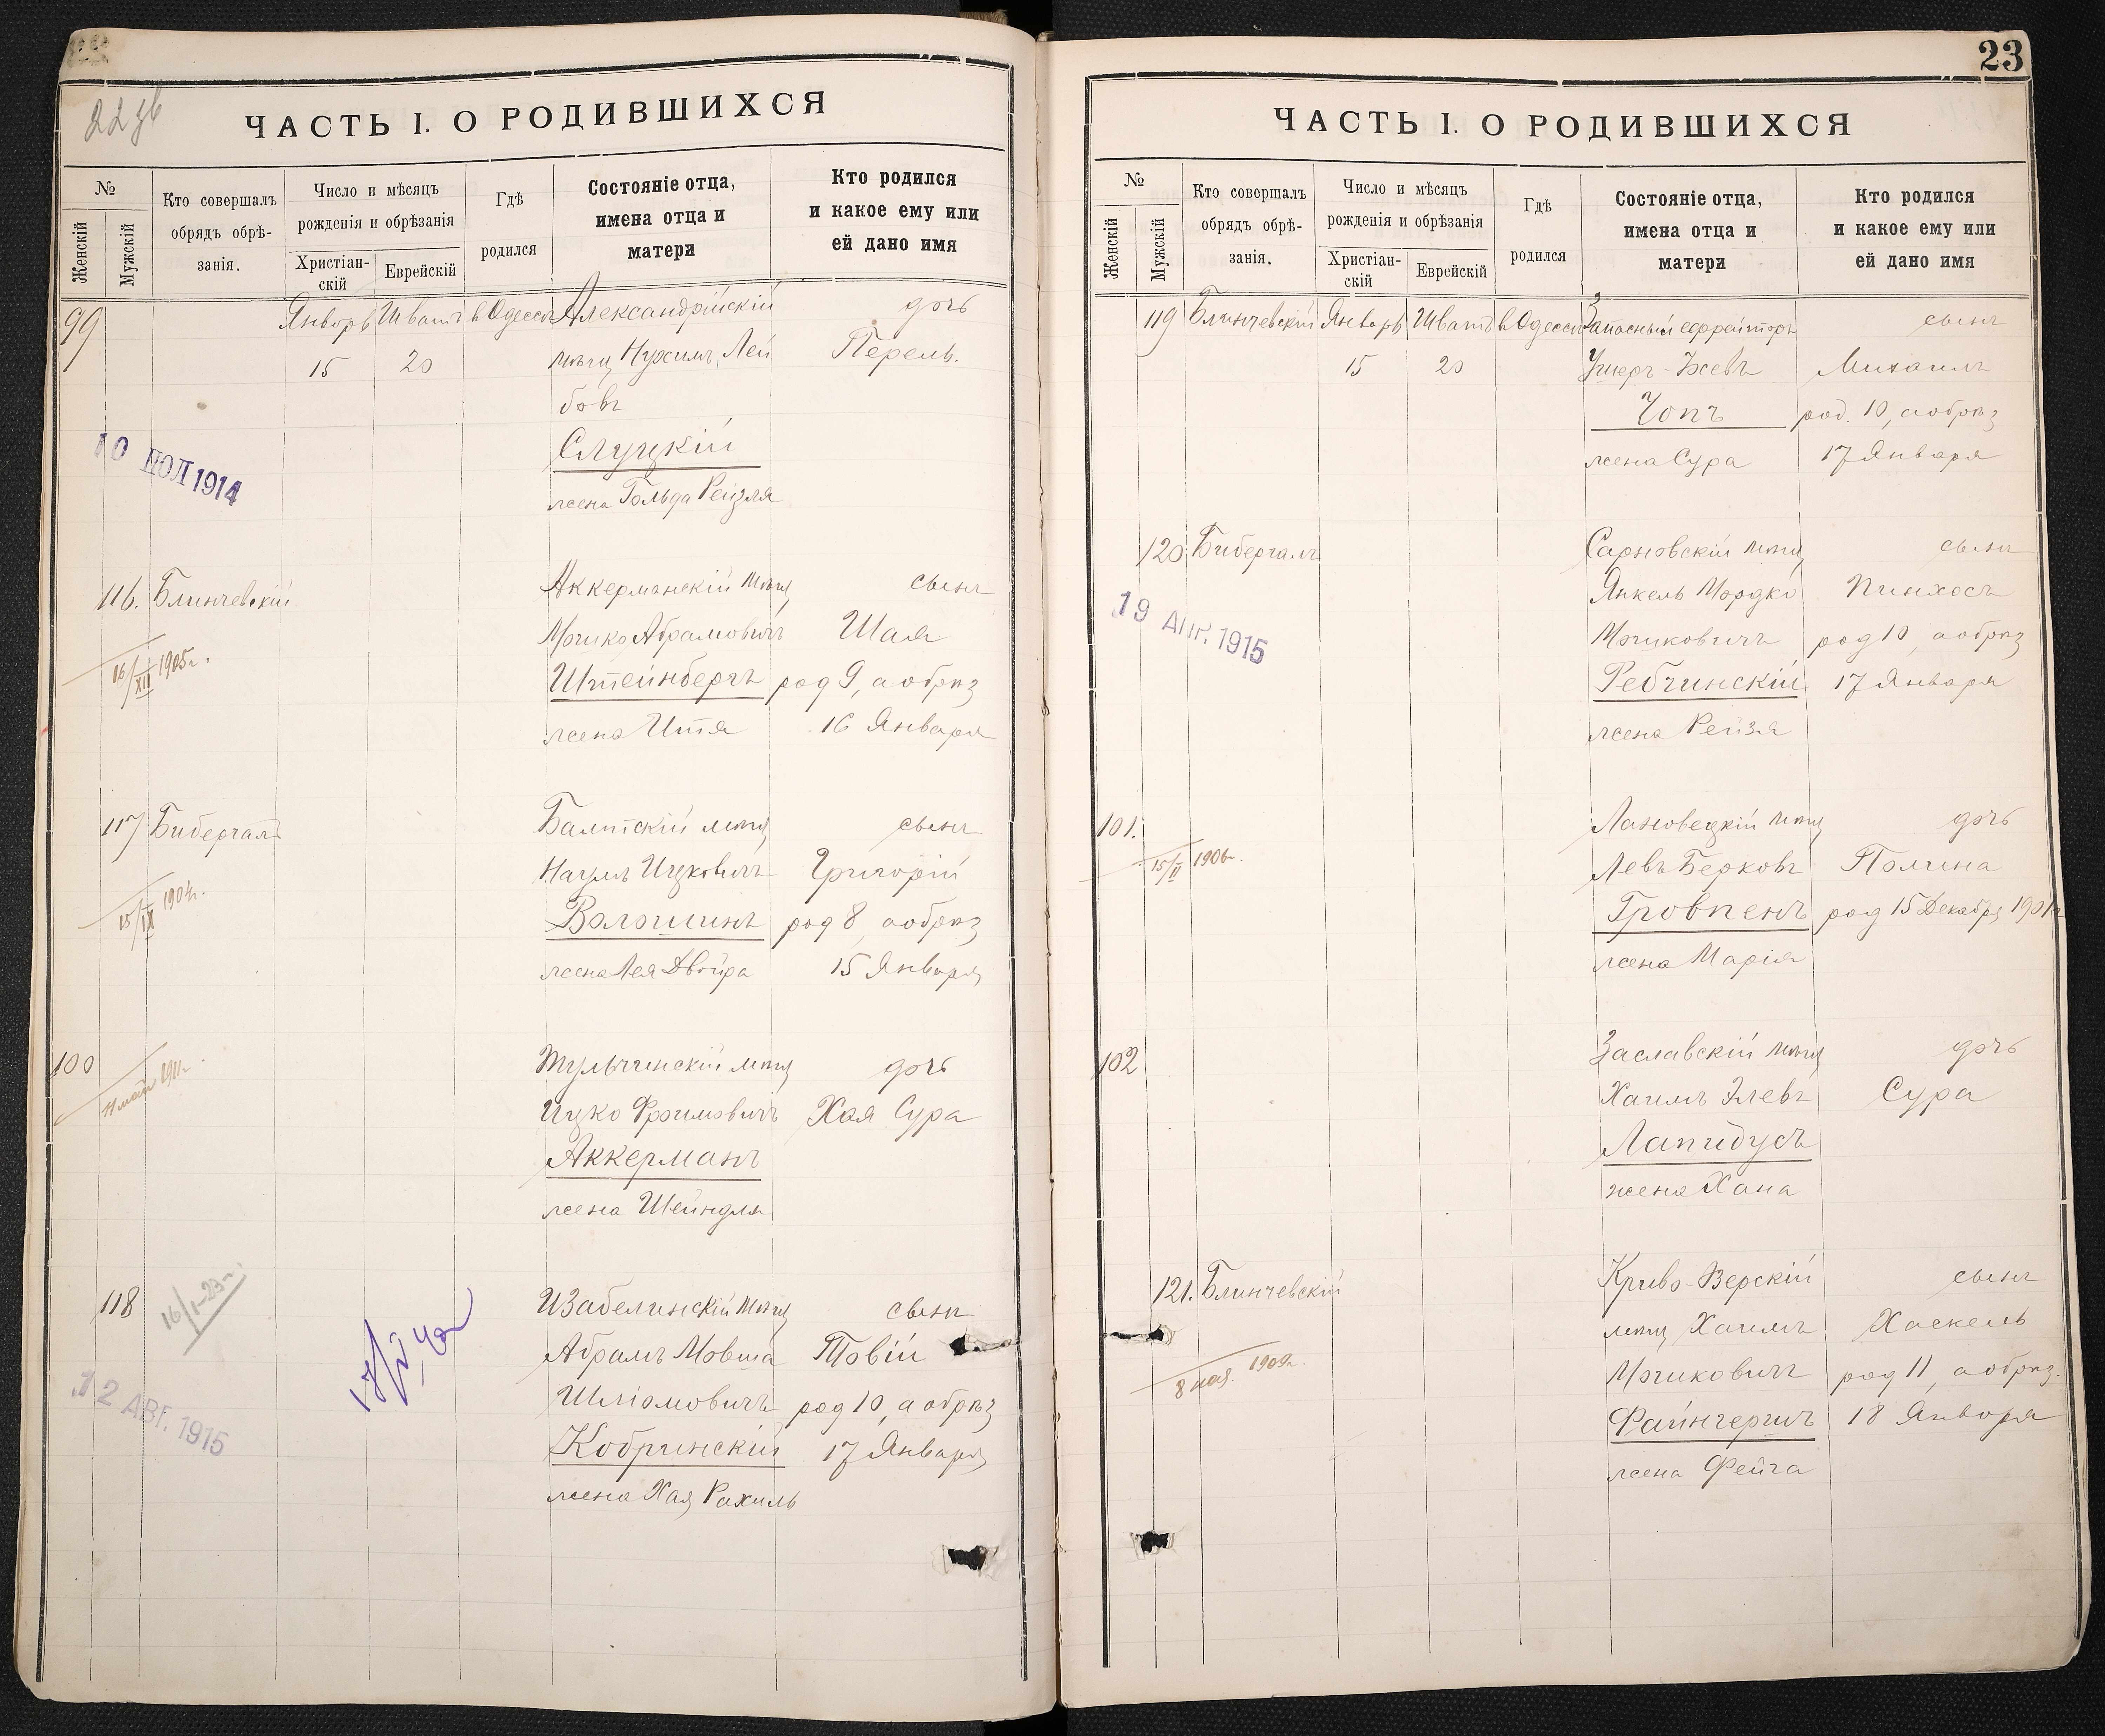 22 зв
ЧАСТЬ I. О РОДИВШИХСЯ
№
Женскій
Мужскій
Кто совершалъ
обрядъ обрѣ-
занія.
Число и мѣсяцъ
рожденія и обрѣзанія
Христіан-
скій
Еврейскій
Гдѣ
родился
Состояніе отца,
имена отца и
матери
Кто родился
и какое ему или
ей дано имя
99 Январь Шватъ в Одессѣ Александрійскій дочь
15 20 мѣщ Нухимъ Лей Перель.
бовъ
Слуцкій
жена Гольда Рейзля
10 ІЮЛ 1914
116. Блинчевскій Аккерманскій мѣщ сынъ
Мошко Абрамовичъ Шая
16/XII 1905г.
Штейнбергъ род 9, а обрѣз
жена Итя 16 Января
117 Бибергалъ Балтскій мѣщ сынъ
Наумъ Ицковичъ Григорій
15/IX 1904г.
Волошинъ род 8, а обрѣз
жена Лея Двойра 15 Января
100 Тульчинскій мѣщ дочь
11 мая 1911г.
Ицко Фроимовичъ Хая Сура
Аккерманъ
жена Шейндля
118 Изабелинскій мѣщ сынъ
16/I-23г.
Абрамъ Мовша Товій
Шліомовичъ род 10, а обрѣз
12 АВГ. 1915
Кобринскій 17 Января
жена Хая Рахиль
23
ЧАСТЬ I. О РОДИВШИХСЯ
№
Женскій
Мужскій
Кто совершалъ
обрядъ обрѣ-
занія.
Число и мѣсяцъ
рожденія и обрѣзанія
Христіан-
скій
Еврейскій
Гдѣ
родился
Состояніе отца,
имена отца и
матери
Кто родился
и какое ему или
ей дано имя
119 Блинчевскій Январь Шватъ в Одессѣ Запасный ефрейторъ сынъ
15 20 Ушеръ Михаилъ
Чопъ род. 10, а обрѣз
жена Сура 17 Января
120 Бибергалъ Сарновскій мѣщ сынъ
Янкель Мордко Пинхосъ
19 АПР. 1915
Мошковичъ род 10, а обрѣз
Ребчинскій 17 Января
жена Рейзя
101. Лановецкій мѣщ дочь
15/II 1906г.
Левъ Берковъ Полина
Гровпенъ род 15 Декабря 1901г
жена Марія
102 Заславскій мѣщ дочь
Хаимъ Элевъ Сура
Лапидусъ
жена Хана
121. Блинчевскій Криво-Зерскій сынъ
мѣщ Хаимъ Хаскель
8 1909г.
Мошковичъ род 11, а обрѣз.
Файнгершъ 18 Января
жена Фейга